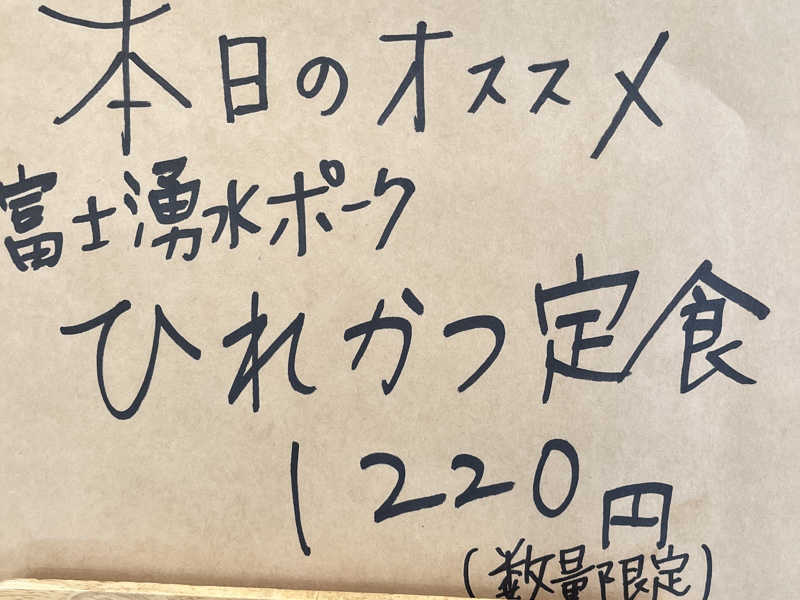 本日のオススメ
富士湧水ポーク
ひれかつ定食
1220円
(数量限定)